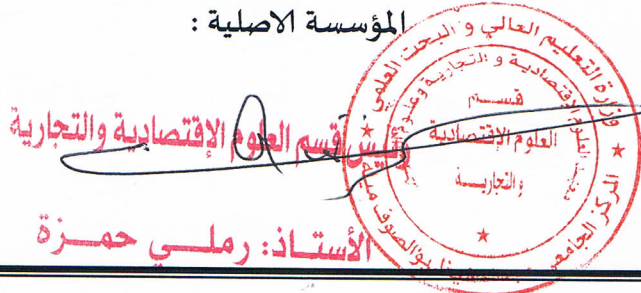 المؤسسة الاصلية :
رئيس قسم العلوم الإقتصادية والتجارية
الأستاذ: رملي حمزة
وزارة التعليم العالي و البحث العلمي
المركز الجامعي
معهد العلوم الإقتصادية و التجارية وعلوم
قسم
العلوم الإقتصادية
والتجارية